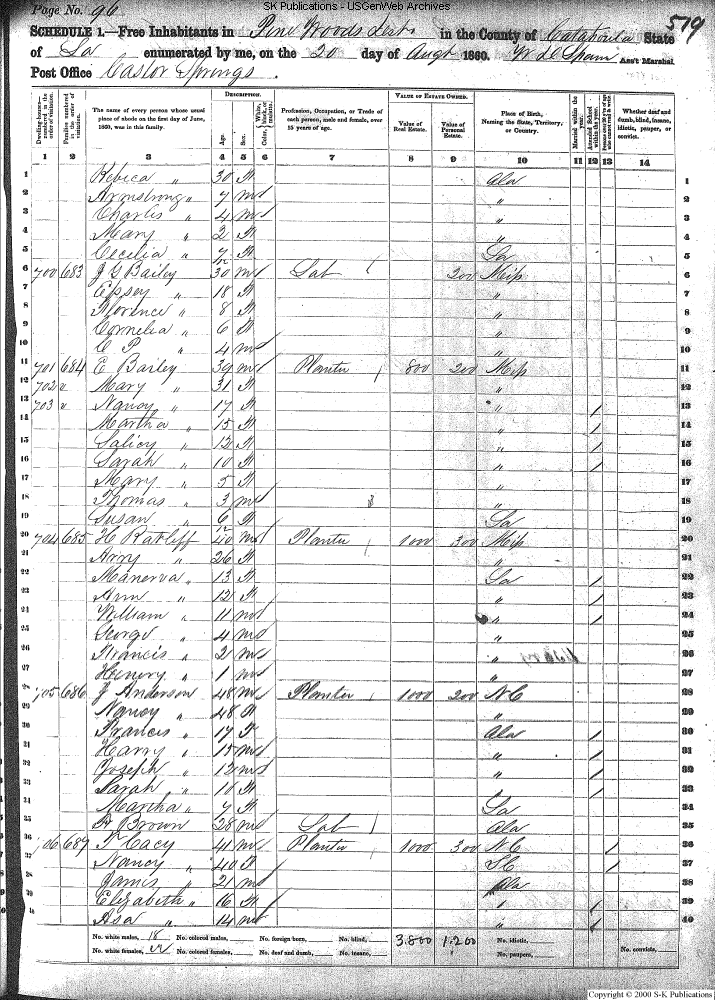 SK Publications - USGenWeb Archives
Page No. 96
SCHEDULE 1.—Free Inhabitants in Pine Woods Dist. in the County of Catahoula State
579
of La enumerated by me, on the 20 day of Augt 1860. Ass't Marshal.
Post Office Castor Springs.
DESCRIPTION. VALUE OF ESTATE OWNED.
Dwelling-houses—numbered in the order of visitation. Families numbered in the order of visitation. The name of every person whose usual place of abode on the first day of June, 1860, was in this family. Age. Sex. Color, White, black, or mulatto. Profession, Occupation, or Trade of each person, male and female, over 15 years of age. Value of Real Estate. Value of Personal Estate. Place of Birth, Naming the State, Territory, or Country. Married within the year. Attended School within the year. Whether deaf and dumb, blind, insane, idiotic, pauper, or convict.
1 2 3 4 5 6 7 8 9 10 11 12 13 14
1 Rebica " 30 f Ala 1
2 Armstrong " 7 m " 2
3 Charlis " 4 m " 3
4 Mary " 2 f " 4
5 Cecelia " 7/12 f La 5
6 700 683 J G Bailey 30 m Lab 200 Miss 6
7 Epsey " 18 f " 7
8 Florence " 8 f " 8
9 Cornelia " 6 f " 9
10 C P " 4 m " 10
11 701 684 E Bailey 39 m Planter 800 200 Miss 11
12 702 " Mary " 31 f " 12
13 703 " Nancy " 17 f " / 13
14 Martha " 15 f " / 14
15 " 12 f " / 15
16 Sarah " 10 f " / 16
17 Mary " 5 f " 17
18 Thomas " 3 m " 18
19 Susan " 6/12 f La 19
20 704 685 H Ratliff 40 m Planter 1000 300 Miss 20
21 Amy " 26 f " 21
22 Manerva " 13 f La / 22
23 Ann " 12 f " / 23
24 William " 11 m " / 24
25 George " 4 m " 25
26 Francis " 2 m " 26
27 Henery " 1 m " 27
28 705 686 J Anderson 48 m Planter 1000 200 NC 28
29 Nancy " 48 f " 29
30 Francis " 17 f Ala / 30
31 Harry " 15 m " / 31
32 Joseph " 12 m " / 32
33 Sarah " 10 f " / 33
34 Martha " 7 f La 34
35 Brown 28 m Lab Ala 35
36 706 689 Cacy 41 m Planter 1000 300 NC / 36
37 Nancy " 40 f SC / 37
38 James " 21 m Ala 38
39 Elizabeth " 16 f " / 39
40 Asa " 14 m " / 40
No. white males, 18 No. colored males, No. foreign born, No. blind, 3.800 1.200 No. idiotic,
No. white females, 22 No. colored females, No. deaf and dumb, No. insane, No. paupers, No. convicts,
Copyright © 2000 S-K Publications